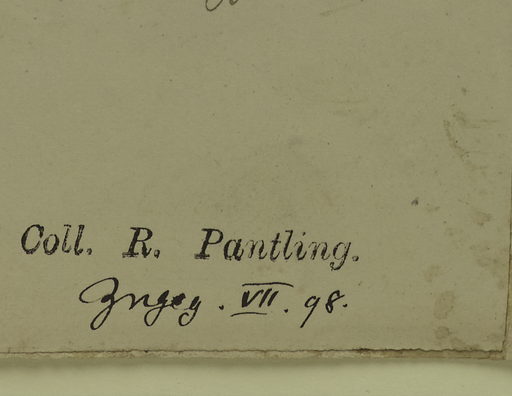 Coll. R. Pantling.
VII. 98.